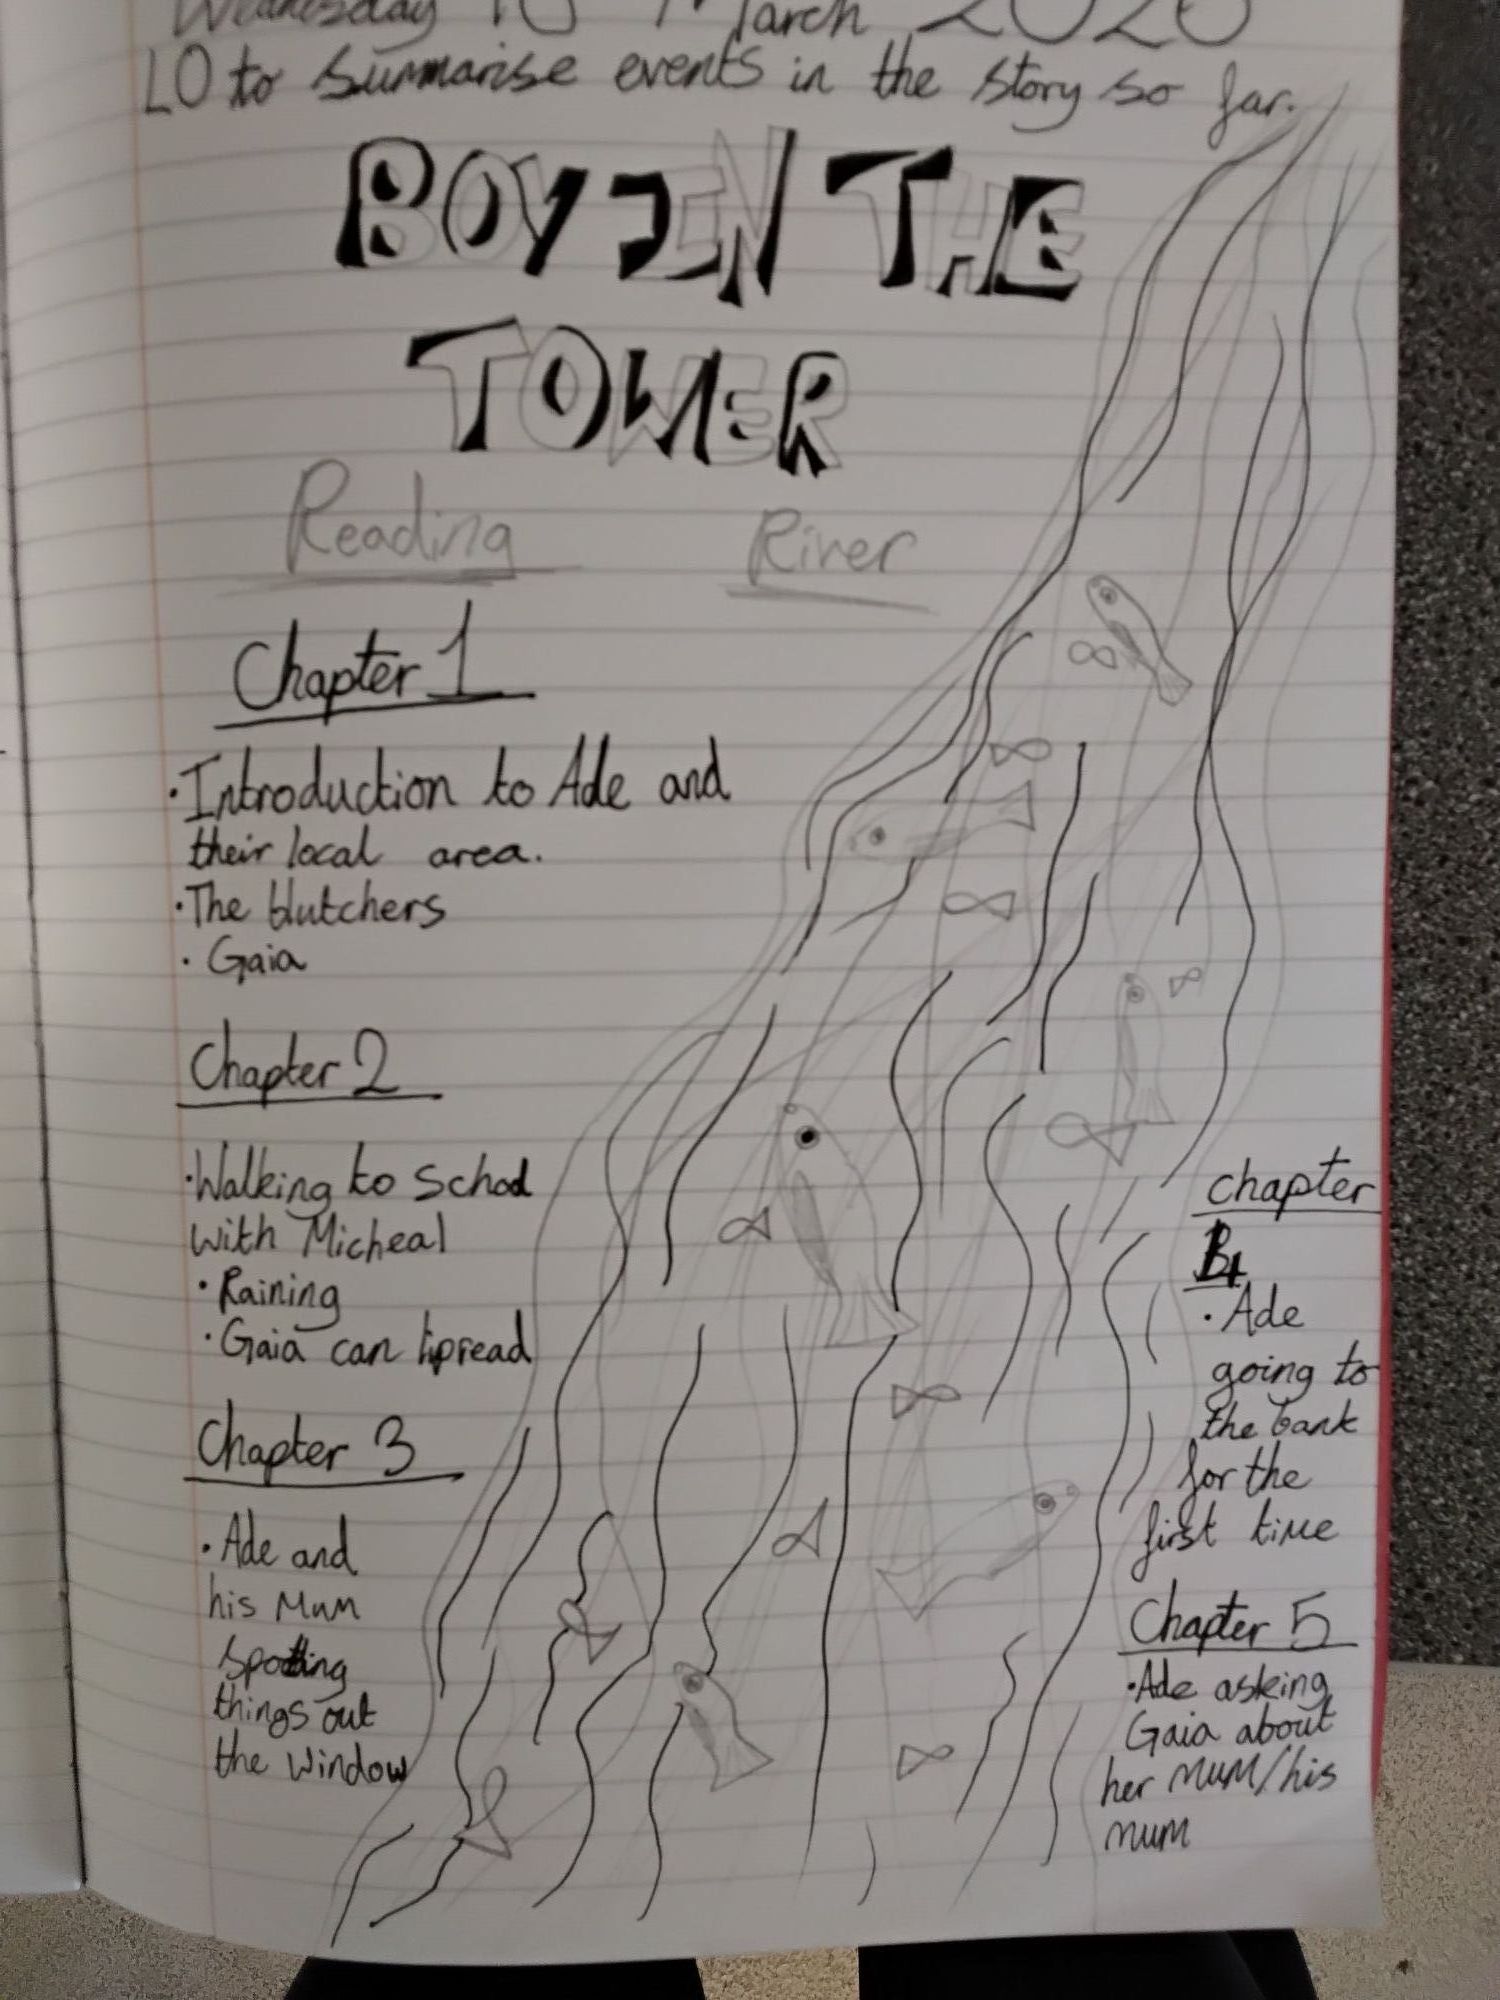 Wednesday March 2026
LO to summarise events in the story so far.
BOY IN THE
TOWER
Reading River
Chapter 1
·Introduction to Ade and
their local area.
·The butchers
· Gaia
Chapter 2
·Walking to school
with Micheal
· Raining
· Gaia can lipread
Chapter 3
· Ade and
his Mum
spotting
things out
the window
Chapter
4
· Ade
going to
the bank
for the
first time
Chapter 5
·Ade asking
Gaia about
her mum/his
mum